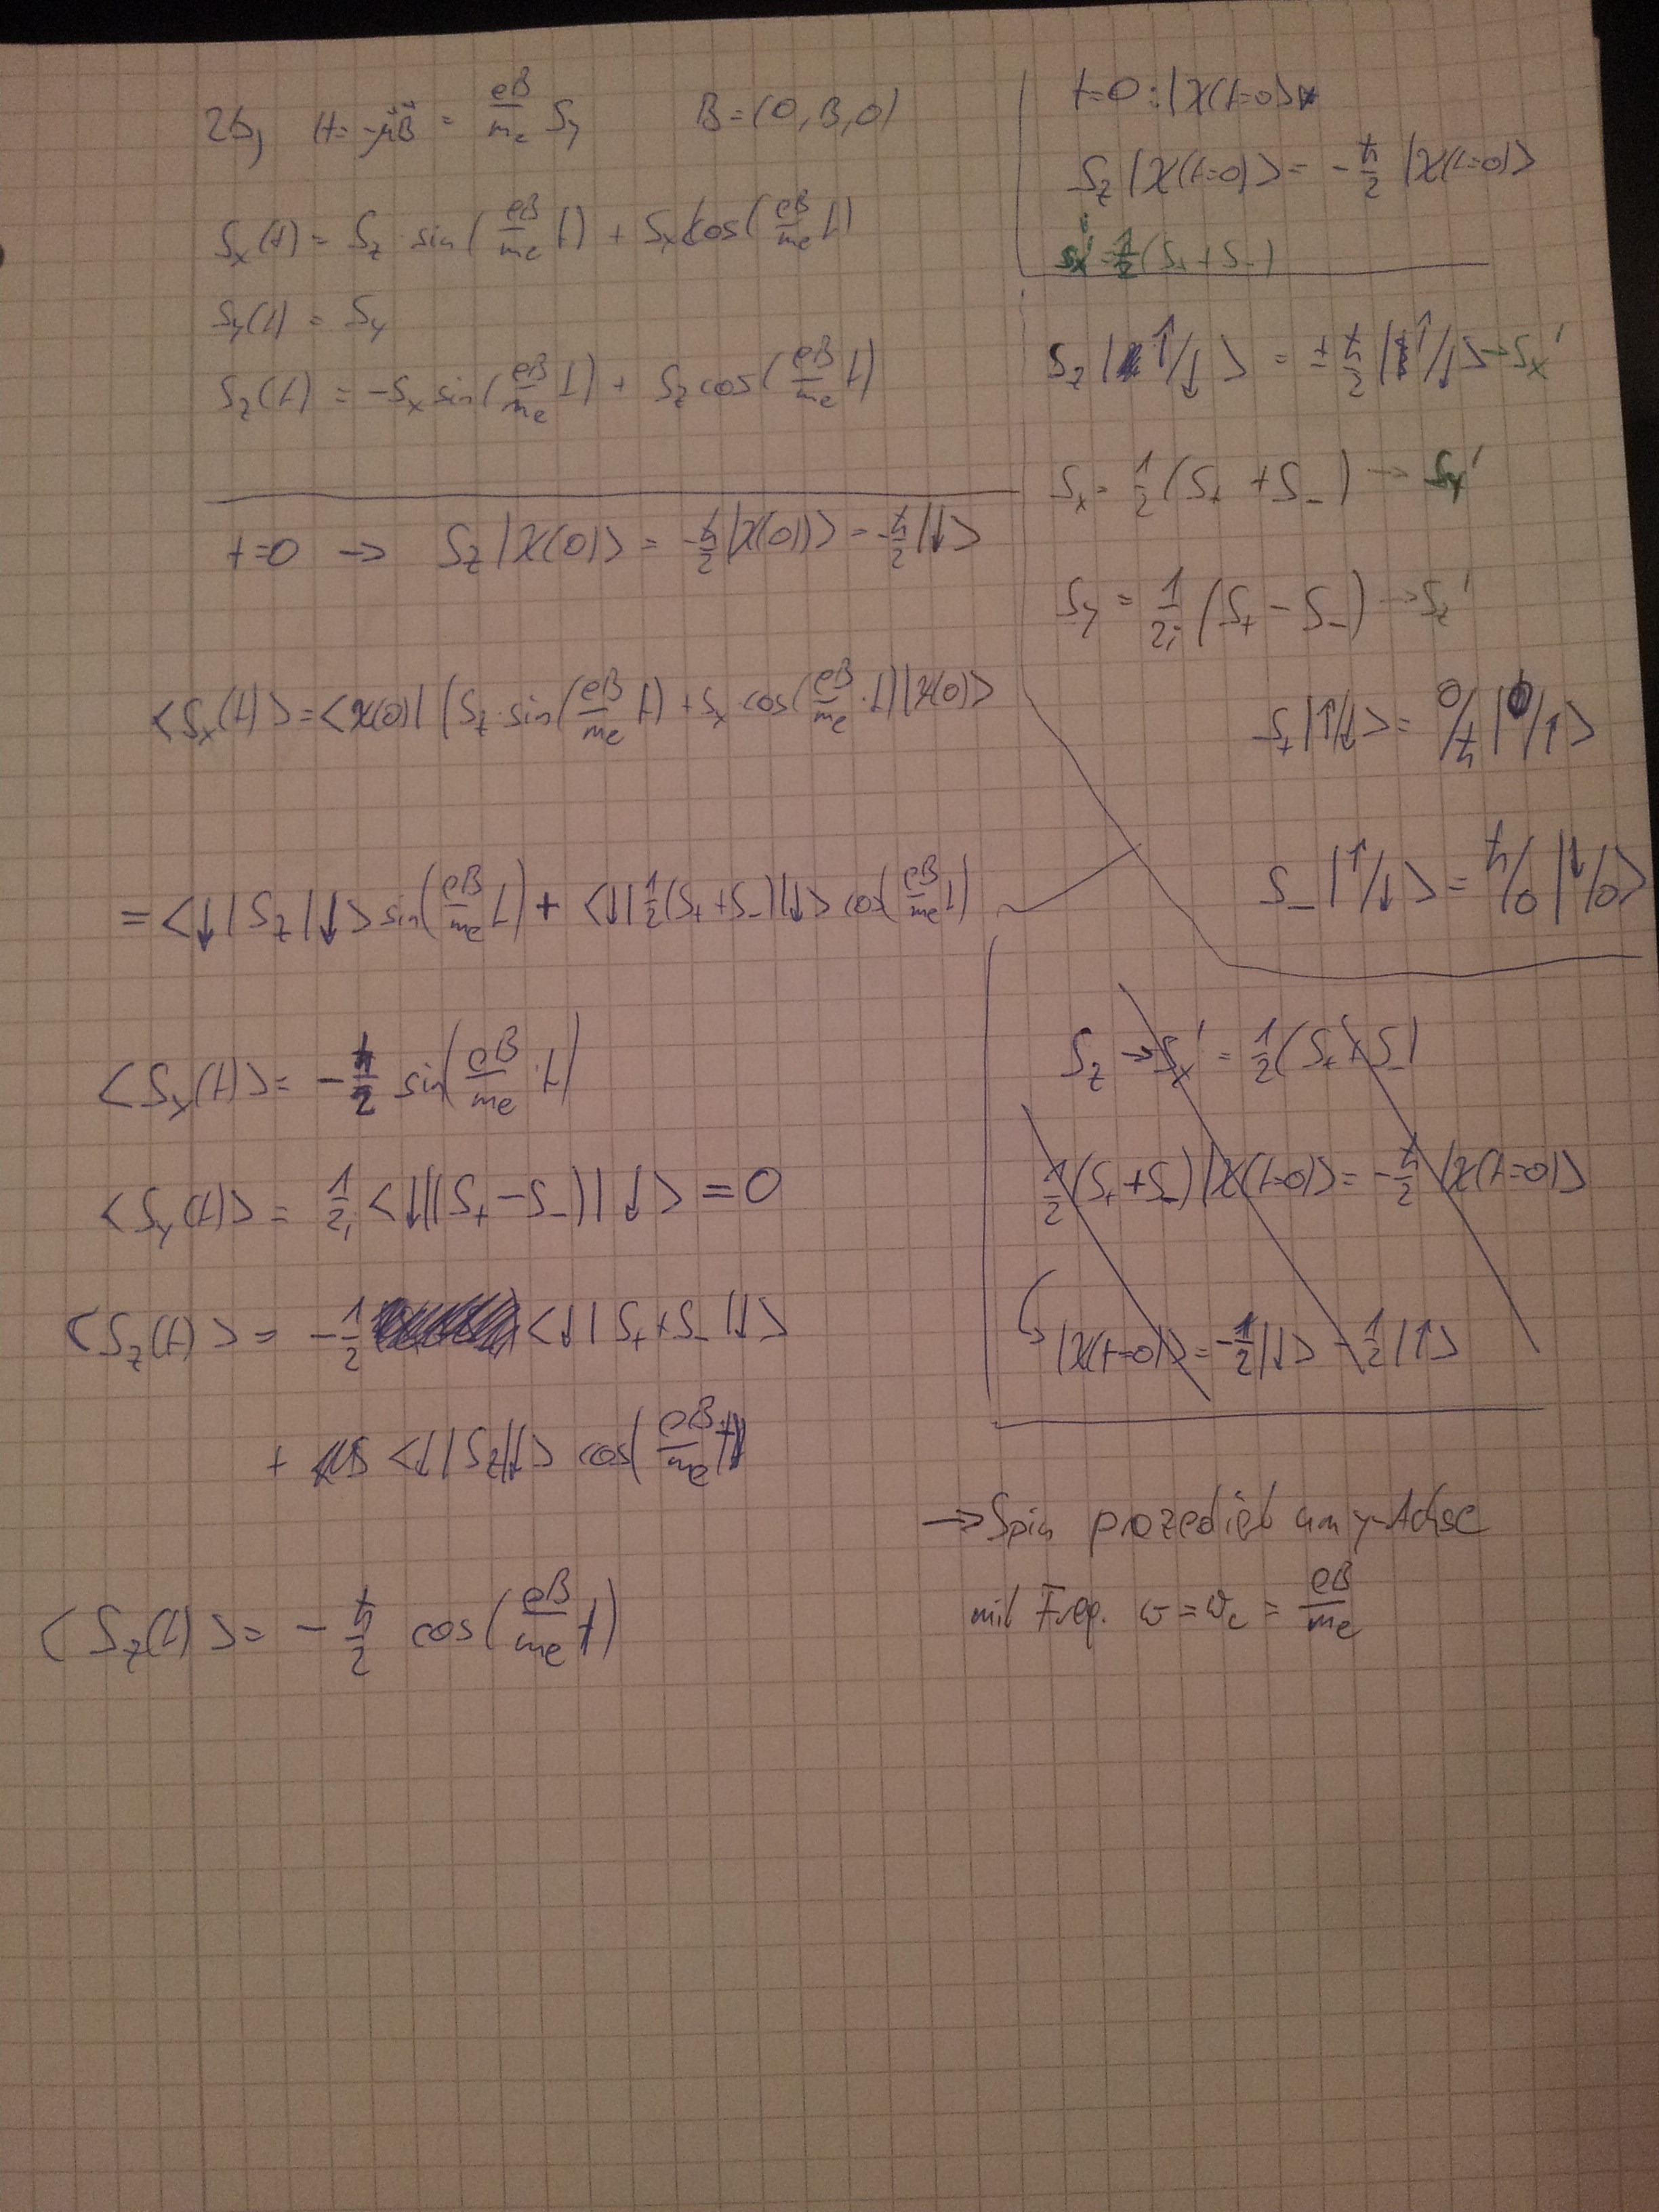 2b) H = -μ⃗B⃗ = eB/me Sy   B = (0, B, 0)
Sx(t) = Sz · sin(eB/me t) + Sx cos(eB/me t)
Sy(t) = Sy
Sz(t) = -Sx sin(eB/me t) + Sz cos(eB/me t)
t=0 → Sz |χ(0)> = -ħ/2 |χ(0)> = -ħ/2 |↓>
<Sx(t)> = <χ(0)| (Sz · sin(eB/me t) + Sx · cos(eB/me · t) |χ(0)>
= <↓|Sz|↓> sin(eB/me t) + <↓|1/2(S+ + S-)|↓> cos(eB/me t)
<Sx(t)> = -ħ/2 sin(eB/me · t)
<Sy(t)> = 1/2i <↓|(S+ - S-)|↓> = 0
<Sz(t)> = -1/2 <↓|S+ + S-|↓>
+ <↓|Sz|↓> cos(eB/me t)
<Sz(t)> = -ħ/2 cos(eB/me t)
t=0: |χ(t=0)>
Sz |χ(t=0)> = -ħ/2 |χ(t=0)>
Sx' = 1/2 (S+ + S-)
Sz |↑/↓> = ±ħ/2 |↑/↓> → Sx'
Sx = 1/2 (S+ + S-) → Sy'
Sy = 1/2i (S+ - S-) → Sz'
S+ |↑/↓> = 0/ħ |0/↑>
S- |↑/↓> = ħ/0 |↓/0>
Sz → Sx' = 1/2 (S+ + S-)
1/2 (S+ + S-) |χ(t=0)> = -ħ/2 |χ(t=0)>
↳ |χ(t=0)> = -1/2 |↓> - 1/2 |↑>
→ Spin präzediert um y-Achse
mit Freq. ω = ωc = eB/me